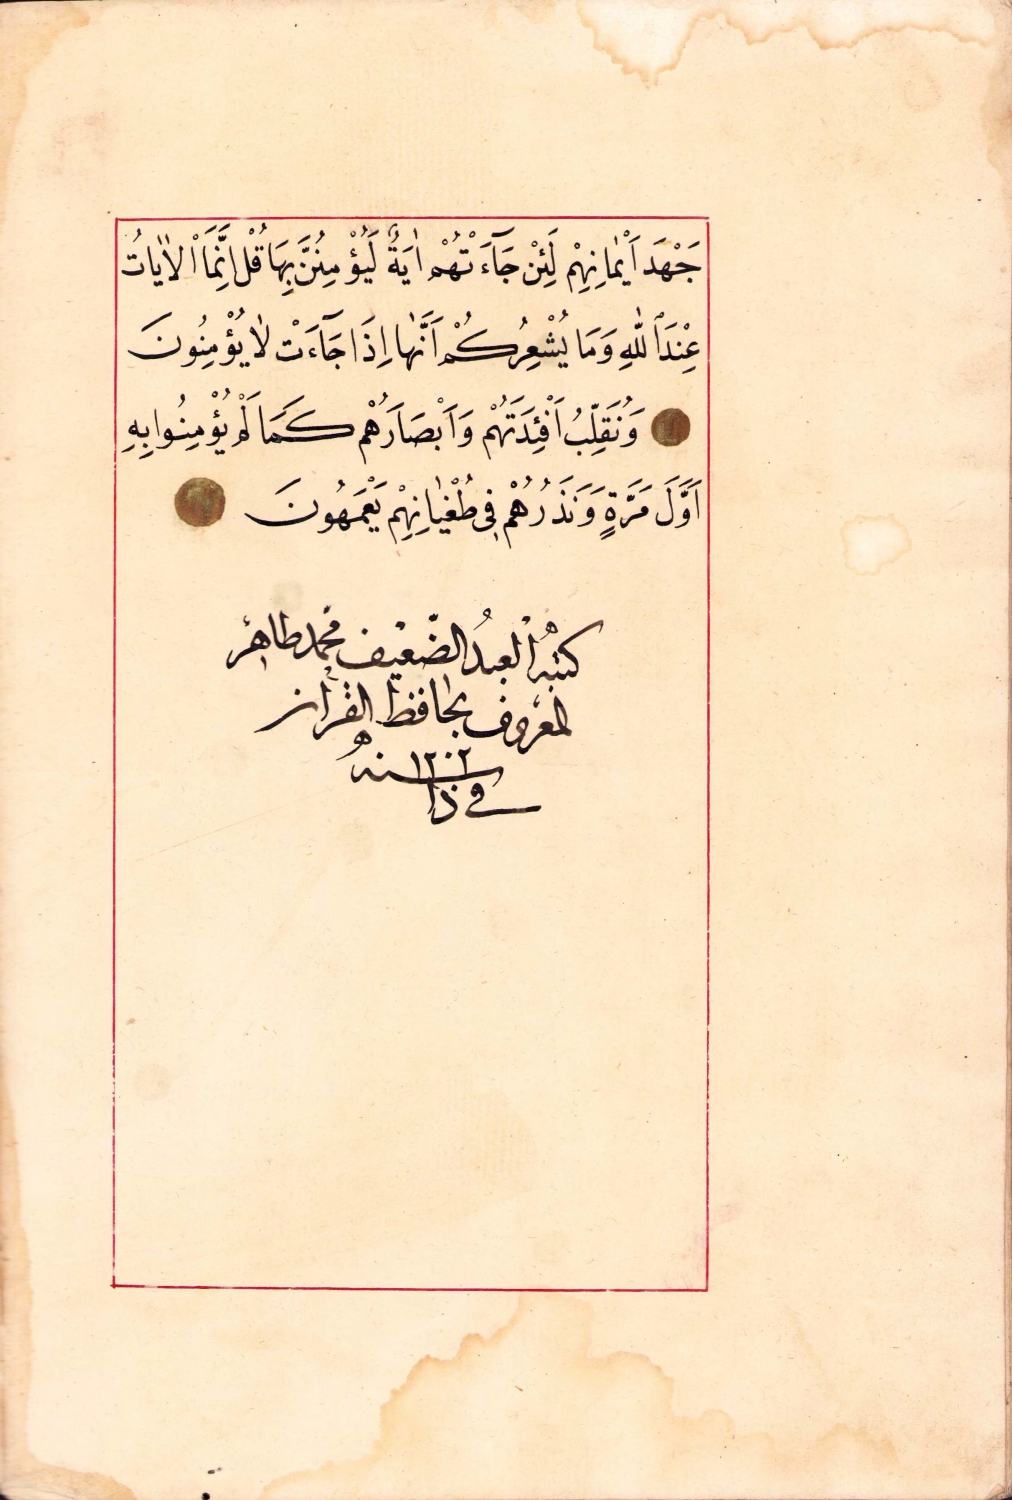 جَهْدَ اَيْمٰانِهِمْ لَئِنْ جَآءَتْهُمْ اٰيَةٌ لَيُؤْمِنُنَّ بِهَا قُلْ اِنَّمَا اْلاٰيٰاتُ
عِنْدَ اللّٰهِ وَمَا يُشْعِرُكُمْ اَنَّهٰا اِذَا جَآءَتْ لاٰ يُؤْمِنُونَ
وَنُقَلِّبُ اَفْئِدَتَهُمْ وَاَبْصَارَهُمْ كَمَا لَمْ يُؤْمِنُوا بِهِ
اَوَّلَ مَرَّةٍ وَنَذَرُهُمْ فِى طُغْيٰانِهِمْ يَعْمَهُونَ
كتبهُ العبدُ الضّعيف محمد طاهر
المعروف بحافظ القرآن
سنه ١٢٠٢
في ذا